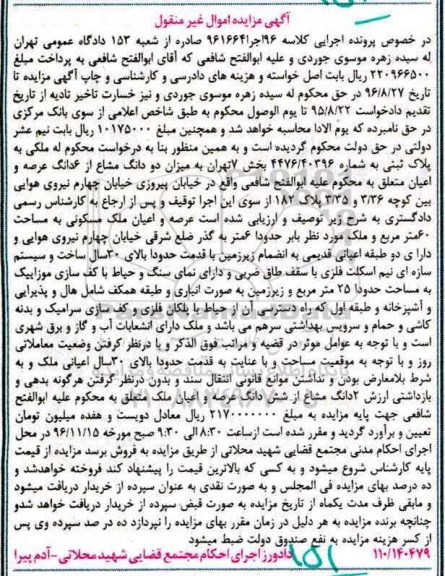 آگهی مزایده اموال غیر منقول
در خصوص پرونده اجرایی کلاسه ۹۶اجرا۹۶۱۶۶۴ صادره از شعبه ۱۵۳ دادگاه عمومی تهران
له سیده زهره موسوی جوردی و علیه ابوالفتح شافعی که آقای ابوالفتح شافعی به پرداخت مبلغ
۲۲۰۹۶۶۵۰۰ ریال بابت اصل خواسته و هزینه های دادرسی و کارشناسی و چاپ آگهی مزایده تا
تاریخ ۹۶/۸/۲۷ در حق محکوم له سیده زهره موسوی جوردی و نیز خسارت تاخیر تادیه از تاریخ
تقدیم دادخواست ۹۵/۸/۲۲ تا یوم الوصول محکوم به طبق شاخص اعلامی از سوی بانک مرکزی
در حق نامبرده که یوم الادا محاسبه خواهد شد و همچنین مبلغ ۱۰۱۷۵۰۰۰ ریال بابت نیم عشر
دولتی در حق دولت محکوم گردیده است و به همین منظور بنا به درخواست محکوم له ملکی به
پلاک ثبتی به شماره ۴۴۷۶/۴۰۳۹۶ بخش ۷تهران به میزان دو دانگ مشاع از ۶دانگ عرصه و
اعیان متعلق به محکوم علیه ابوالفتح شافعی واقع در خیابان پیروزی خیابان چهارم نیروی هوایی
بین کوچه ۳/۳۶ و ۳/۳۵ پلاک ۱۸۲ از سوی این اجرا توقیف و پس از ارجاع به کارشناس رسمی
دادگستری به شرح زیر توصیف و ارزیابی شده است عرصه و اعیان ملک مسکونی به مساحت
۶۰متر مربع و ملک مورد نظر بابر حدودا ۶متر به گذر ضلع شرقی خیابان چهارم نیروی هوایی و
دارا ی دو طبقه اعیانی قدیمی به انضمام زیرزمین با قدمت حدودا بالای ۳۰سال ساخت و سیستم
سازه ای نیم اسکلت فلزی با سقف طاق ضربی و دارای نمای سنگ و حیاط با کف سازی موزاییک
به مساحت حدودا ۲۵ متر مربع و زیرزمین به صورت انباری و طبقه همکف شامل هال و پذیرایی
و آشپزخانه و طبقه اول که راه دسترسی آن از حیاط با پلکان فلزی و کف سازی سرامیک و بدنه
کاشی و حمام و سرویس بهداشتی سرهم می باشد و ملک دارای انشعابات آب و گاز و برق شهری
است و با توجه به عوامل موثر در قضیه و مراتب فوق الذکر و با درنظر گرفتن وضعیت معاملاتی
روز و با توجه به موقعیت مساحت و با عنایت به قدمت حدودا بالای ۳۰سال اعیانی ملک و به
شرط بلامعارض بودن و نداشتن موانع قانونی انتقال سند و بدون درنظر گرفتن هرگونه بدهی و
بازداشتی ارزش ۲دانگ مشاع از شش دانگ عرصه و اعیان ملک متعلق به محکوم علیه ابوالفتح
شافعی جهت پایه مزایده به مبلغ ۲۱۷۰۰۰۰۰۰۰ ریال معادل دویست و هفده میلیون تومان
تعیین و برآورد گردید و مقرر شده است ازساعت ۸:۳۰ الی ۹:۳۰ صبح مورخه ۹۶/۱۱/۱۵ در محل
اجرای احکام مدنی مجتمع قضایی شهید محلاتی از طریق مزایده به فروش برسد مزایده از قیمت
پایه کارشناس شروع میشود و به کسی که بالاترین قیمت را پیشنهاد کند فروخته خواهدشد و
ده درصد بهای مزایده فی المجلس و به صورت نقدی به عنوان سپرده از خریدار دریافت میشود
و مابقی ظرف مدت یکماه از تاریخ مزایده به صورت قبض سپرده از خریدار دریافت خواهد شدو
چنانچه برنده مزایده به هر دلیل در زمان مقرر بهای مزایده را نپردازد ده در صد سپرده وی پس
از کسر هزینه مزایده به نفع صندوق دولت ضبط میشود
۱۱۰/۱۴۰۴۷۹ دادورز اجرای احکام مجتمع قضایی شهید محلاتی - آدم پیرا